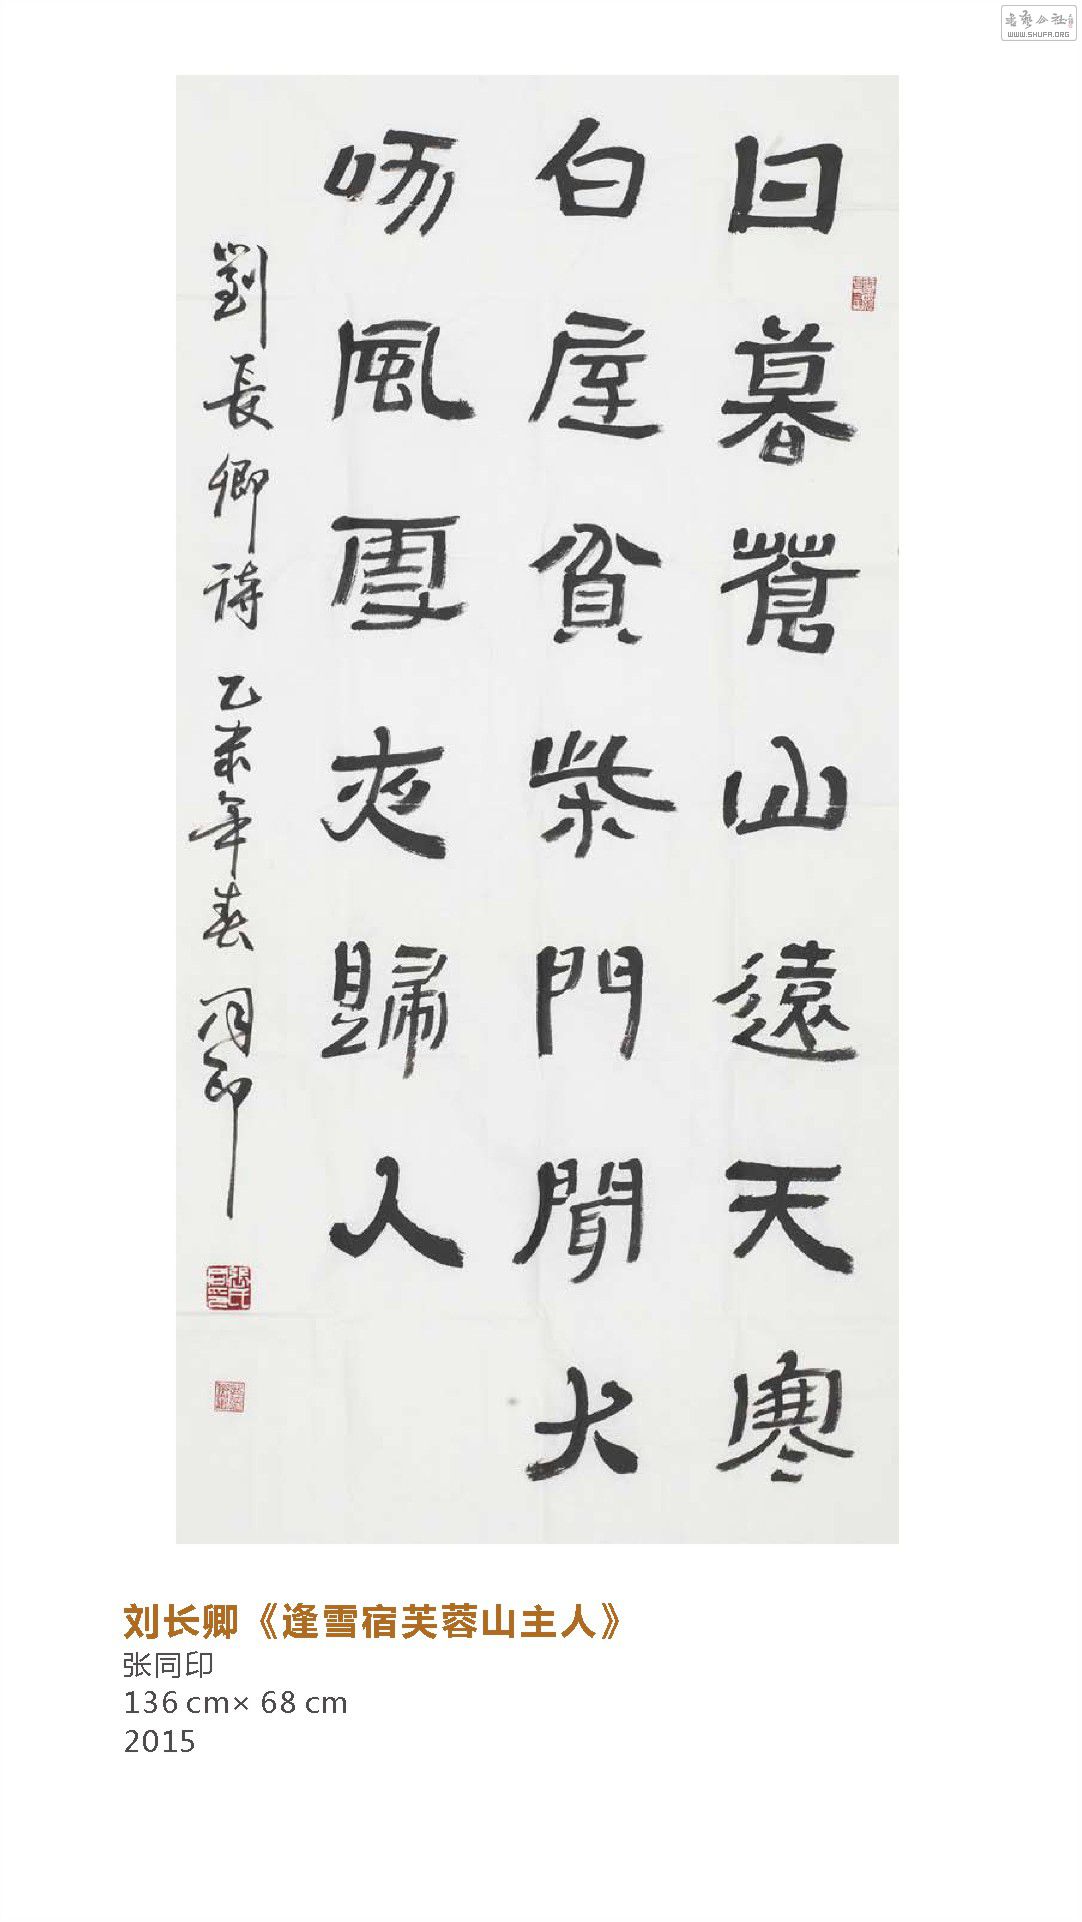 日暮蒼山遠天寒
白屋貧柴門聞犬
吠風雪夜歸人
劉長卿詩 乙未年春 同印
刘长卿《逢雪宿芙蓉山主人》
张同印
136 cm× 68 cm
2015
書藝公社
WWW.SHUFA.ORG